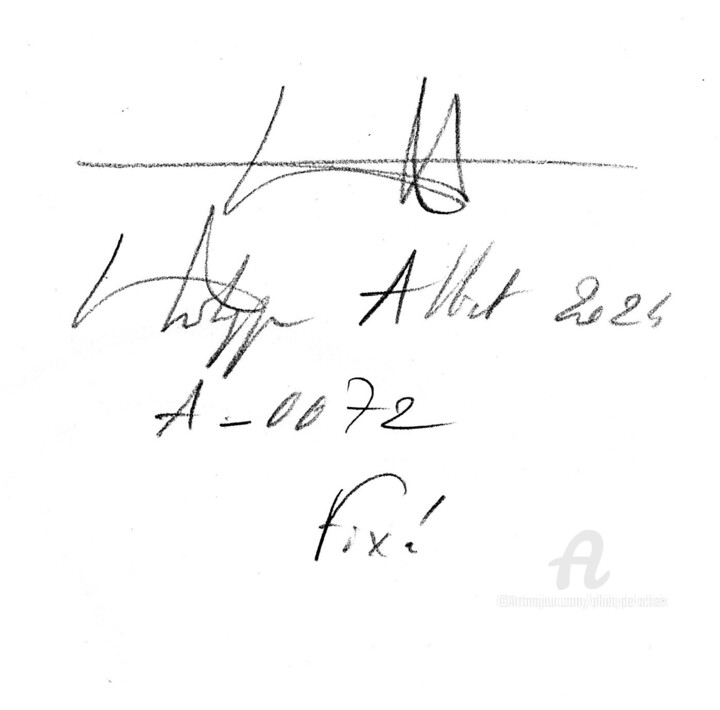 Philippe Albert 2024
A-0072
Fixé
A